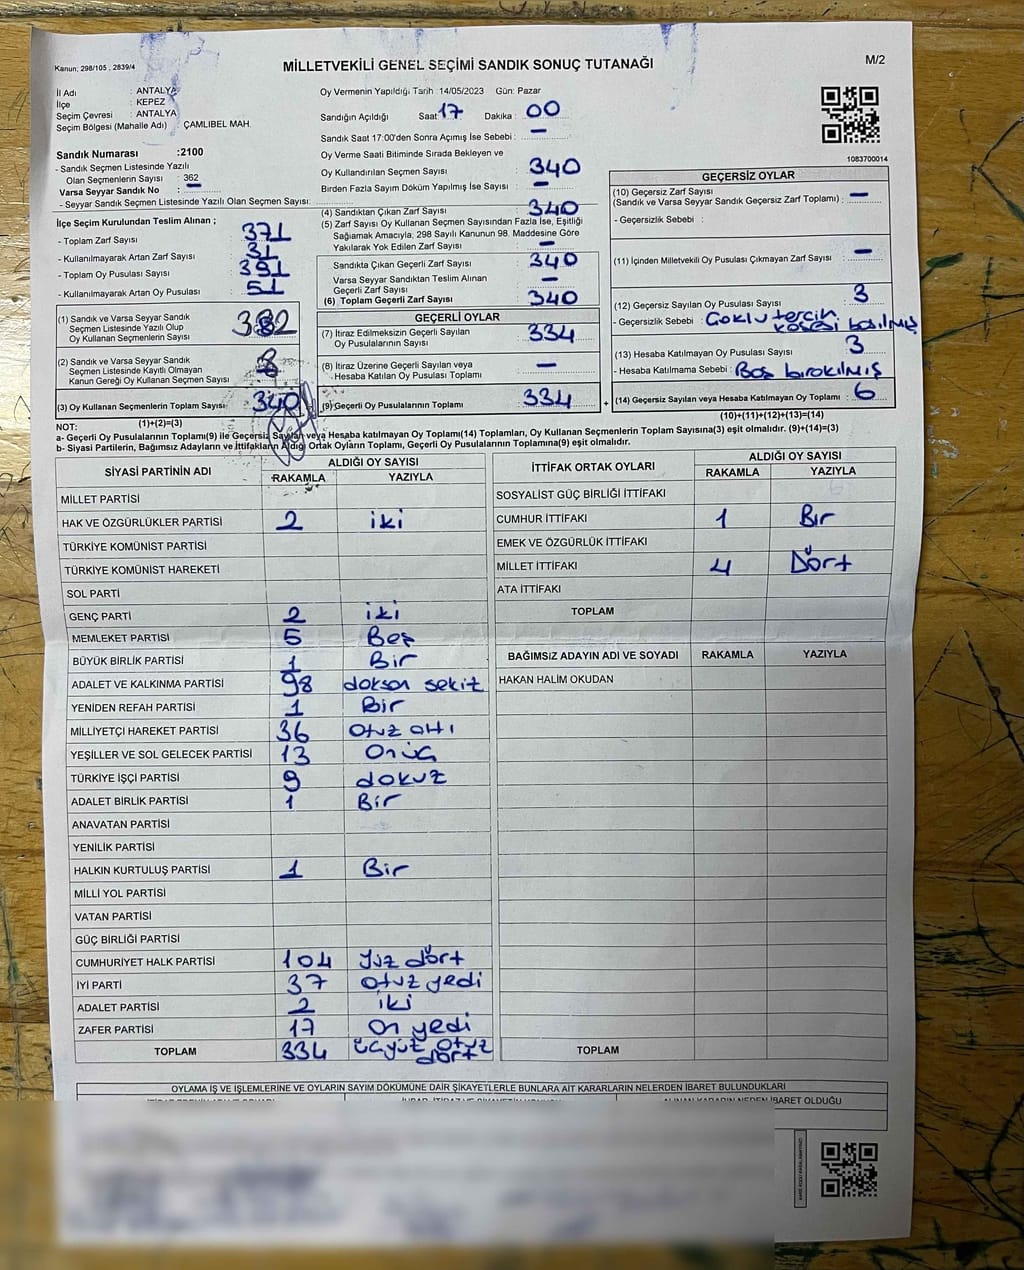 Kanun: 298/105 , 2839/4
MİLLETVEKİLİ GENEL SEÇİMİ SANDIK SONUÇ TUTANAĞI
M/2
İl Adı : ANTALYA
İlçe : KEPEZ
Seçim Çevresi : ANTALYA
Seçim Bölgesi (Mahalle Adı) ÇAMLIBEL MAH.
Sandık Numarası :2100
- Sandık Seçmen Listesinde Yazılı
Olan Seçmenlerin Sayısı : 362
Varsa Seyyar Sandık No : —
- Seyyar Sandık Seçmen Listesinde Yazılı Olan Seçmen Sayısı:
İlçe Seçim Kurulundan Teslim Alınan ;
- Toplam Zarf Sayısı : 371
- Kullanılmayarak Artan Zarf Sayısı : 31
- Toplam Oy Pusulası Sayısı : 391
- Kullanılmayarak Artan Oy Pusulası : 51
(1) Sandık ve Varsa Seyyar Sandık
Seçmen Listesinde Yazılı Olup
Oy Kullanan Seçmenlerin Sayısı
(2) Sandık ve Varsa Seyyar Sandık
Seçmen Listesinde Kayıtlı Olmayan
Kanun Gereği Oy Kullanan Seçmen Sayısı : 8
(3) Oy Kullanan Seçmenlerin Toplam Sayısı 340
(1)+(2)=(3)
Oy Vermenin Yapıldığı Tarih :14/05/2023 Gün: Pazar
Sandığın Açıldığı Saat 17 Dakika : 00
Sandık Saat 17:00'den Sonra Açımış İse Sebebi : —
Oy Verme Saati Bitiminde Sırada Bekleyen ve
Oy Kullandırılan Seçmen Sayısı : 340
Birden Fazla Sayım Döküm Yapılmış İse Sayısı : —
(4) Sandıktan Çıkan Zarf Sayısı : 340
(5) Zarf Sayısı Oy Kullanan Seçmen Sayısından Fazla İse, Eşitliği
Sağlamak Amacıyla, 298 Sayılı Kanunun 98. Maddesine Göre
Yakılarak Yok Edilen Zarf Sayısı : —
Sandıkta Çıkan Geçerli Zarf Sayısı : 340
Varsa Seyyar Sandıktan Teslim Alınan
Geçerli Zarf Sayısı : —
(6) Toplam Geçerli Zarf Sayısı : 340
GEÇERLİ OYLAR
(7) İtiraz Edilmeksizin Geçerli Sayılan
Oy Pusulalarının Sayısı : 334
(8) İtiraz Üzerine Geçerli Sayılan veya
Hesaba Katılan Oy Pusulası Toplamı : —
(9) Geçerli Oy Pusulalarının Toplamı : 334 +
1083700014
GEÇERSİZ OYLAR
(10) Geçersiz Zarf Sayısı
(Sandık ve Varsa Seyyar Sandık Geçersiz Zarf Toplamı) : —
- Geçersizlik Sebebi :
(11) İçinden Milletvekili Oy Pusulası Çıkmayan Zarf Sayısı : —
(12) Geçersiz Sayılan Oy Pusulası Sayısı : 3
- Geçersizlik Sebebi : Çoklu tercih
kösesi basılmış
(13) Hesaba Katılmayan Oy Pusulası Sayısı : 3
- Hesaba Katılmama Sebebi : Boş bırakılmış
(14) Geçersiz Sayılan veya Hesaba Katılmayan Oy Toplamı : 6
(10)+(11)+(12)+(13)=(14)
NOT:
a- Geçerli Oy Pusulalarının Toplamı(9) ile Geçersiz Sayılan veya Hesaba katılmayan Oy Toplamı(14) Toplamları, Oy Kullanan Seçmenlerin Toplam Sayısına(3) eşit olmalıdır. (9)+(14)=(3)
b- Siyasi Partilerin, Bağımsız Adayların ve İttifakların Aldığı Ortak Oyların Toplamı, Geçerli Oy Pusulalarının Toplamına(9) eşit olmalıdır.
SİYASİ PARTİNİN ADI ALDIĞI OY SAYISI
RAKAMLA YAZIYLA
MİLLET PARTİSİ
HAK VE ÖZGÜRLÜKLER PARTİSİ 2 iki
TÜRKİYE KOMÜNİST PARTİSİ
TÜRKİYE KOMÜNİST HAREKETİ
SOL PARTİ
GENÇ PARTİ 2 iki
MEMLEKET PARTİSİ 5 Beş
BÜYÜK BİRLİK PARTİSİ 1 Bir
ADALET VE KALKINMA PARTİSİ 98 doksan sekiz
YENİDEN REFAH PARTİSİ 1 Bir
MİLLİYETÇİ HAREKET PARTİSİ 36 otuz altı
YEŞİLLER VE SOL GELECEK PARTİSİ 13 Onüç
TÜRKİYE İŞÇİ PARTİSİ 9 dokuz
ADALET BİRLİK PARTİSİ 1 Bir
ANAVATAN PARTİSİ
YENİLİK PARTİSİ
HALKIN KURTULUŞ PARTİSİ 1 Bir
MİLLİ YOL PARTİSİ
VATAN PARTİSİ
GÜÇ BİRLİĞİ PARTİSİ
CUMHURİYET HALK PARTİSİ 104 Yüz dört
İYİ PARTİ 37 otuz yedi
ADALET PARTİSİ 2 iki
ZAFER PARTİSİ 17 on yedi
TOPLAM 334 üçyüz otuz
dört
İTTİFAK ORTAK OYLARI ALDIĞI OY SAYISI
RAKAMLA YAZIYLA
SOSYALİST GÜÇ BİRLİĞİ İTTİFAKI
CUMHUR İTTİFAKI 1 Bir
EMEK VE ÖZGÜRLÜK İTTİFAKI
MİLLET İTTİFAKI 4 Dört
ATA İTTİFAKI
TOPLAM
BAĞIMSIZ ADAYIN ADI VE SOYADI RAKAMLA YAZIYLA
HAKAN HALİM OKUDAN
TOPLAM
OYLAMA İŞ VE İŞLEMLERİNE VE OYLARIN SAYIM DÖKÜMÜNE DAİR ŞİKAYETLERLE BUNLARA AİT KARARLARIN NELERDEN İBARET BULUNDUKLARI
ALINAN KARARIN NEDEN İBARET OLDUĞU